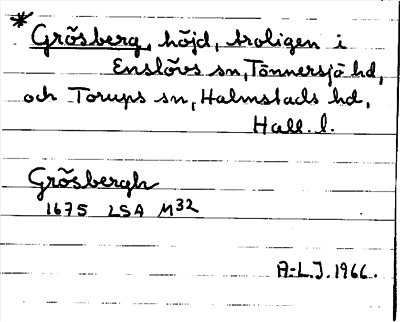 * Grösberg, höjd, troligen i
Enslövs sn, Tönnersjö hd,
och Torups sn, Halmstads hd,
Hall. l.
Grösbergh
1675 LSA M32
A-L.J. 1966.